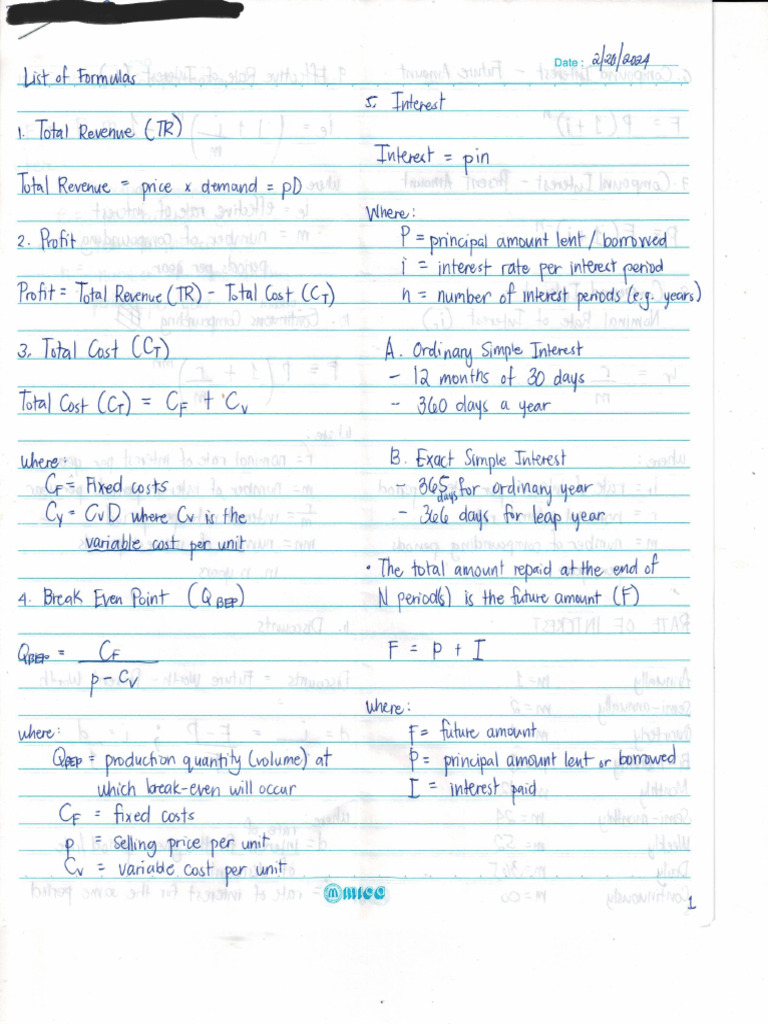 Date: 2/20/2024
List of Formulas
1. Total Revenue (TR)
Total Revenue = price x demand = pD
2. Profit
Profit = Total Revenue (TR) - Total Cost (C_T)
3. Total Cost (C_T)
Total Cost (C_T) = C_F + C_V
where:
C_F = Fixed costs
C_V = C_VD where C_V is the
variable cost per unit
4. Break Even Point (Q_BEP)
Q_BEP = C_F
p - C_V
where:
Q_BEP = production quantity (volume) at
which break-even will occur
C_F = fixed costs
p = selling price per unit
C_V = variable cost per unit
5. Interest
Interest = pin
Where:
P = principal amount lent / borrowed
i = interest rate per interest period
n = number of interest periods (e.g. years)
A. Ordinary Simple Interest
- 12 months of 30 days
- 360 days a year
B. Exact Simple Interest
- 365 days for ordinary year
- 366 days for leap year
• The total amount repaid at the end of
N period(s) is the future amount (F)
F = P + I
where:
F = future amount
P = principal amount lent or borrowed
I = interest paid
micc
1